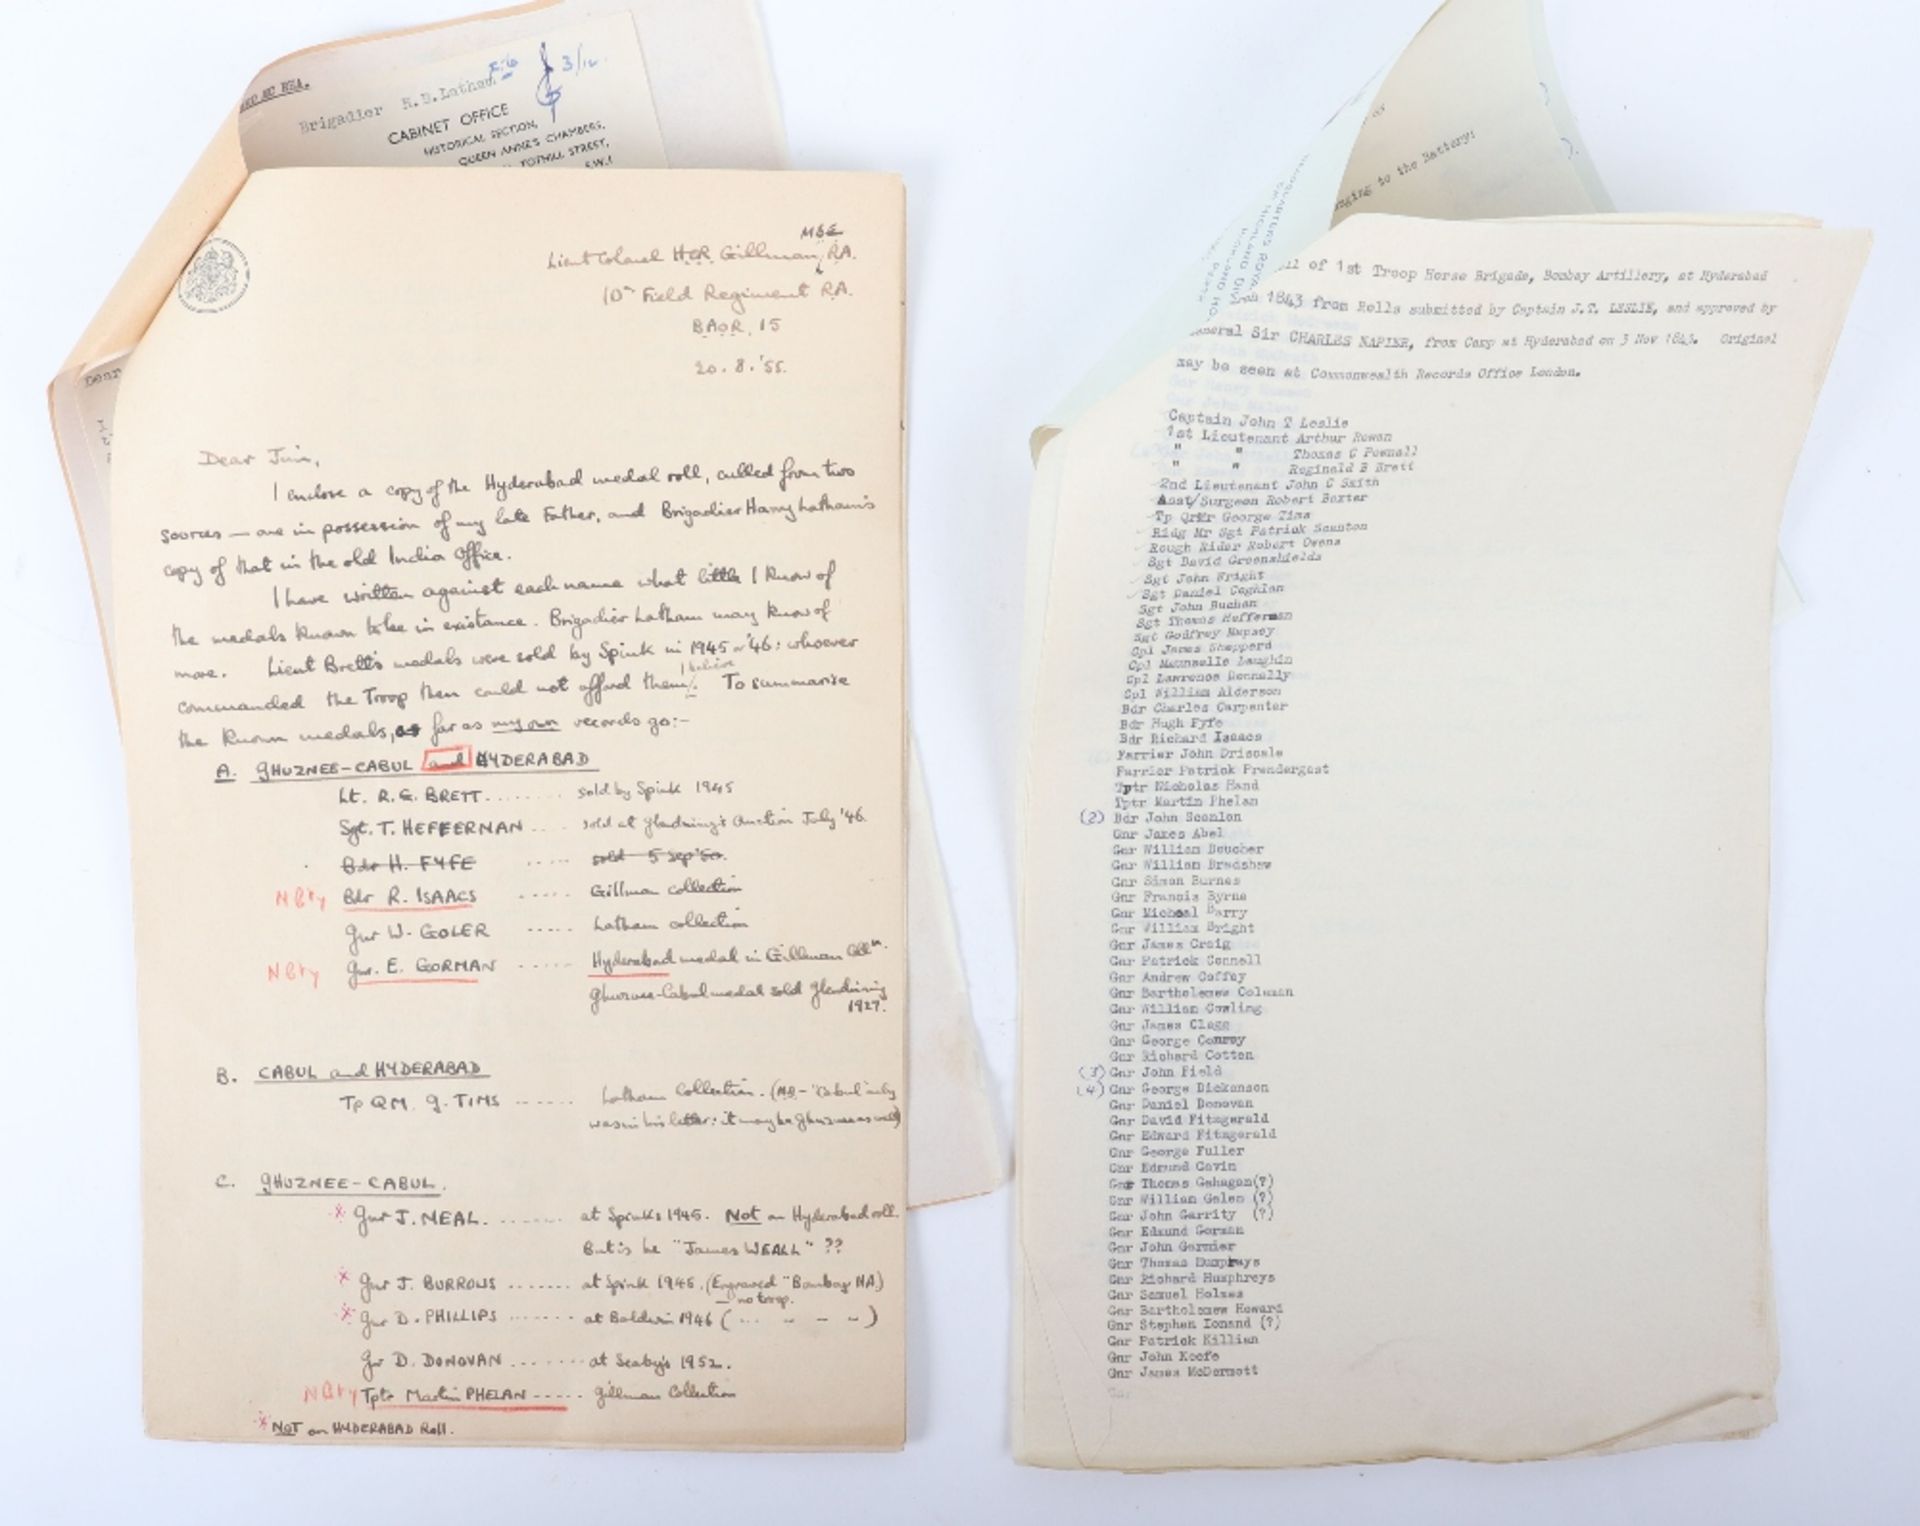 Brigadier H.B.Latham
3/12.
CABINET OFFICE
HISTORICAL SECTION,
QUEEN ANNE'S CHAMBERS,
TOTHILL STREET,
S.W.1
Dear
MBE
Lieut Colonel HCR Gillman, RA.
10th Field Regiment RA.
BAOR, 15
20. 8. '55.
Dear Jim,
I enclose a copy of the Hyderabad medal roll, culled from two
sources — one in possession of my late Father, and Brigadier Harry Latham's
copy of that in the old India Office.
I have written against each name what little I know of
the medals known to be in existance. Brigadier Latham may know of
more. Lieut Brett's medals were sold by Spink in 1945 or '46: whoever
I believe
commanded the Troop then could not afford them. To summarise
the known medals, as far as my own records go:-
A. GHUZNEE-CABUL and HYDERABAD
Lt. R.G. BRETT ........ sold by Spink 1945
Sgt. T. HEFFERNAN .... sold at Glendining's Auction July '46.
Bdr H. FYFE ..... sold 5 Sep '50.
N Bty Bdr R. ISAACS ..... Gillman collection
Gnr W. GOLER ..... Latham collection
N Bty Gnr. E. GORMAN ...... Hyderabad medal in Gillman Colln.
Ghuznee-Cabul medal sold Glendining
1927.
B. CABUL and HYDERABAD
Tp QM. G. TIMS ...... Latham Collection. (NB - "Cabul" only
was in his letter: it may be Ghuznee as well)
C. GHUZNEE-CABUL.
* Gnr J. NEAL ....... at Spinks 1945. Not on Hyderabad roll.
But is he "James WEALL" ??
* Gnr J. BURROWS ....... at Spink 1945. (Engraved "Bombay HA)
- no troop.
* Gnr D. PHILLIPS ....... at Baldwin 1946 ( ... " - " )
Gnr D. DONOVAN ....... at Seaby's 1952.
N Bty Tptr Martin PHELAN ..... Gillman Collection
* NOT on HYDERABAD Roll.
nging to the Battery:
ll of 1st Troop Horse Brigade, Bombay Artillery, at Hyderabad
1843 from Rolls submitted by Captain J.T. LESLIE, and approved by
General Sir CHARLES NAPIER, from Camp at Hyderabad on 3 Nov 1843. Original
may be seen at Commonwealth Records Office London.
Captain John T Leslie
1st Lieutenant Arthur Rowan
" " Thomas C Pownall
" " Reginald B Brett
2nd Lieutenant John C Smith
Asst/Surgeon Robert Baxter
Tp QrMr George Tims
Ridg Mr Sgt Patrick Scanton
Rough Rider Robert Owens
Sgt David Greenshields
Sgt John Wright
Sgt Daniel Coghlan
Sgt John Buchan
Sgt Thomas Heffernan
Sgt Godfrey Mupsey
Cpl James Shepperd
Cpl Maunselle Laughin
Cpl Lawrence Donnally
Cpl William Alderson
Bdr Charles Carpenter
Bdr Hugh Fyfe
Bdr Richard Isaacs
Farrier John Driscale
Farrier Patrick Prendergast
Tptr Nicholas Hand
Tptr Martin Phelan
(2) Bdr John Scanlon
Gnr James Abel
Gnr William Boucher
Gnr William Bradshaw
Gnr Simon Burnes
Gnr Francis Byrne
Gnr Micheal Barry
Gnr William Bright
Gnr James Craig
Gnr Patrick Connell
Gnr Andrew Coffey
Gnr Bartholemew Coleman
Gnr William Cowling
Gnr James Clegg
Gnr George Conroy
Gnr Richard Cotton
(3) Gnr John Field
(4) Gnr George Dickanson
Gnr Daniel Donovan
Gnr David Fitzgerald
Gnr Edward Fitzgerald
Gnr George Fuller
Gnr Edmund Gavin
Gnr Thomas Gahagan(?)
Gnr William Galen (?)
Gnr John Garrity (?)
Gnr Edmund Gorman
Gnr John Garmier
Gnr Thomas Humphreys
Gnr Richard Humphreys
Gnr Samuel Holmes
Gnr Bartholomew Howard
Gnr Stephen Ionand (?)
Gnr Patrick Killian
Gnr John Keefe
Gnr James McDermott